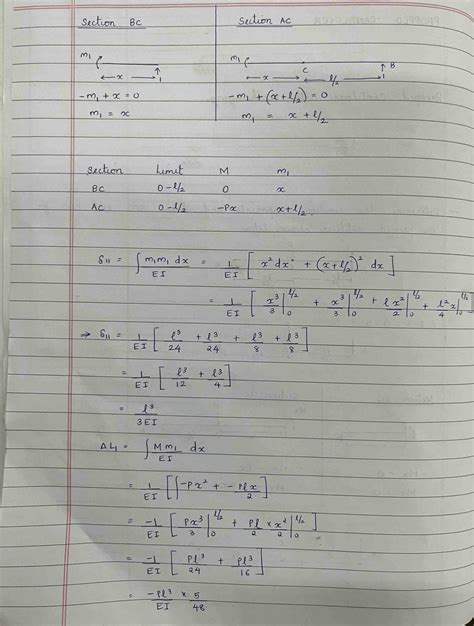 Section BC
m₁
x
1
-m₁ + x = 0
m₁ = x
Section AC
m₁
x
C
l/2
B
1
-m₁ + (x + l/2) = 0
m₁ = x + l/2
Section Limit M m₁
BC 0 - l/2 0 x
AC 0 - l/2 -Px x + l/2
δ₁₁ = ∫ m₁m₁ dx / EI = 1/EI [ x² dx + (x + l/2)² dx ]
= 1/EI [ x³/3 |₀^l/2 + x³/3 |₀^l/2 + l x²/2 |₀^l/2 + l²x/4 |₀^l/2
⇒ δ₁₁ = 1/EI [ l³/24 + l³/24 + l³/8 + l³/8 ]
= 1/EI [ l³/12 + l³/4 ]
= l³/3EI
ΔL₁ = ∫ Mm₁/EI dx
= 1/EI [ ∫ -Px² + -Plx/2 ]
= -1/EI [ Px³/3 |₀^l/2 + Pl/2 × x²/2 |₀^l/2 ]
= -1/EI [ Pl³/24 + Pl³/16 ]
= -Pl³/EI × 5/48